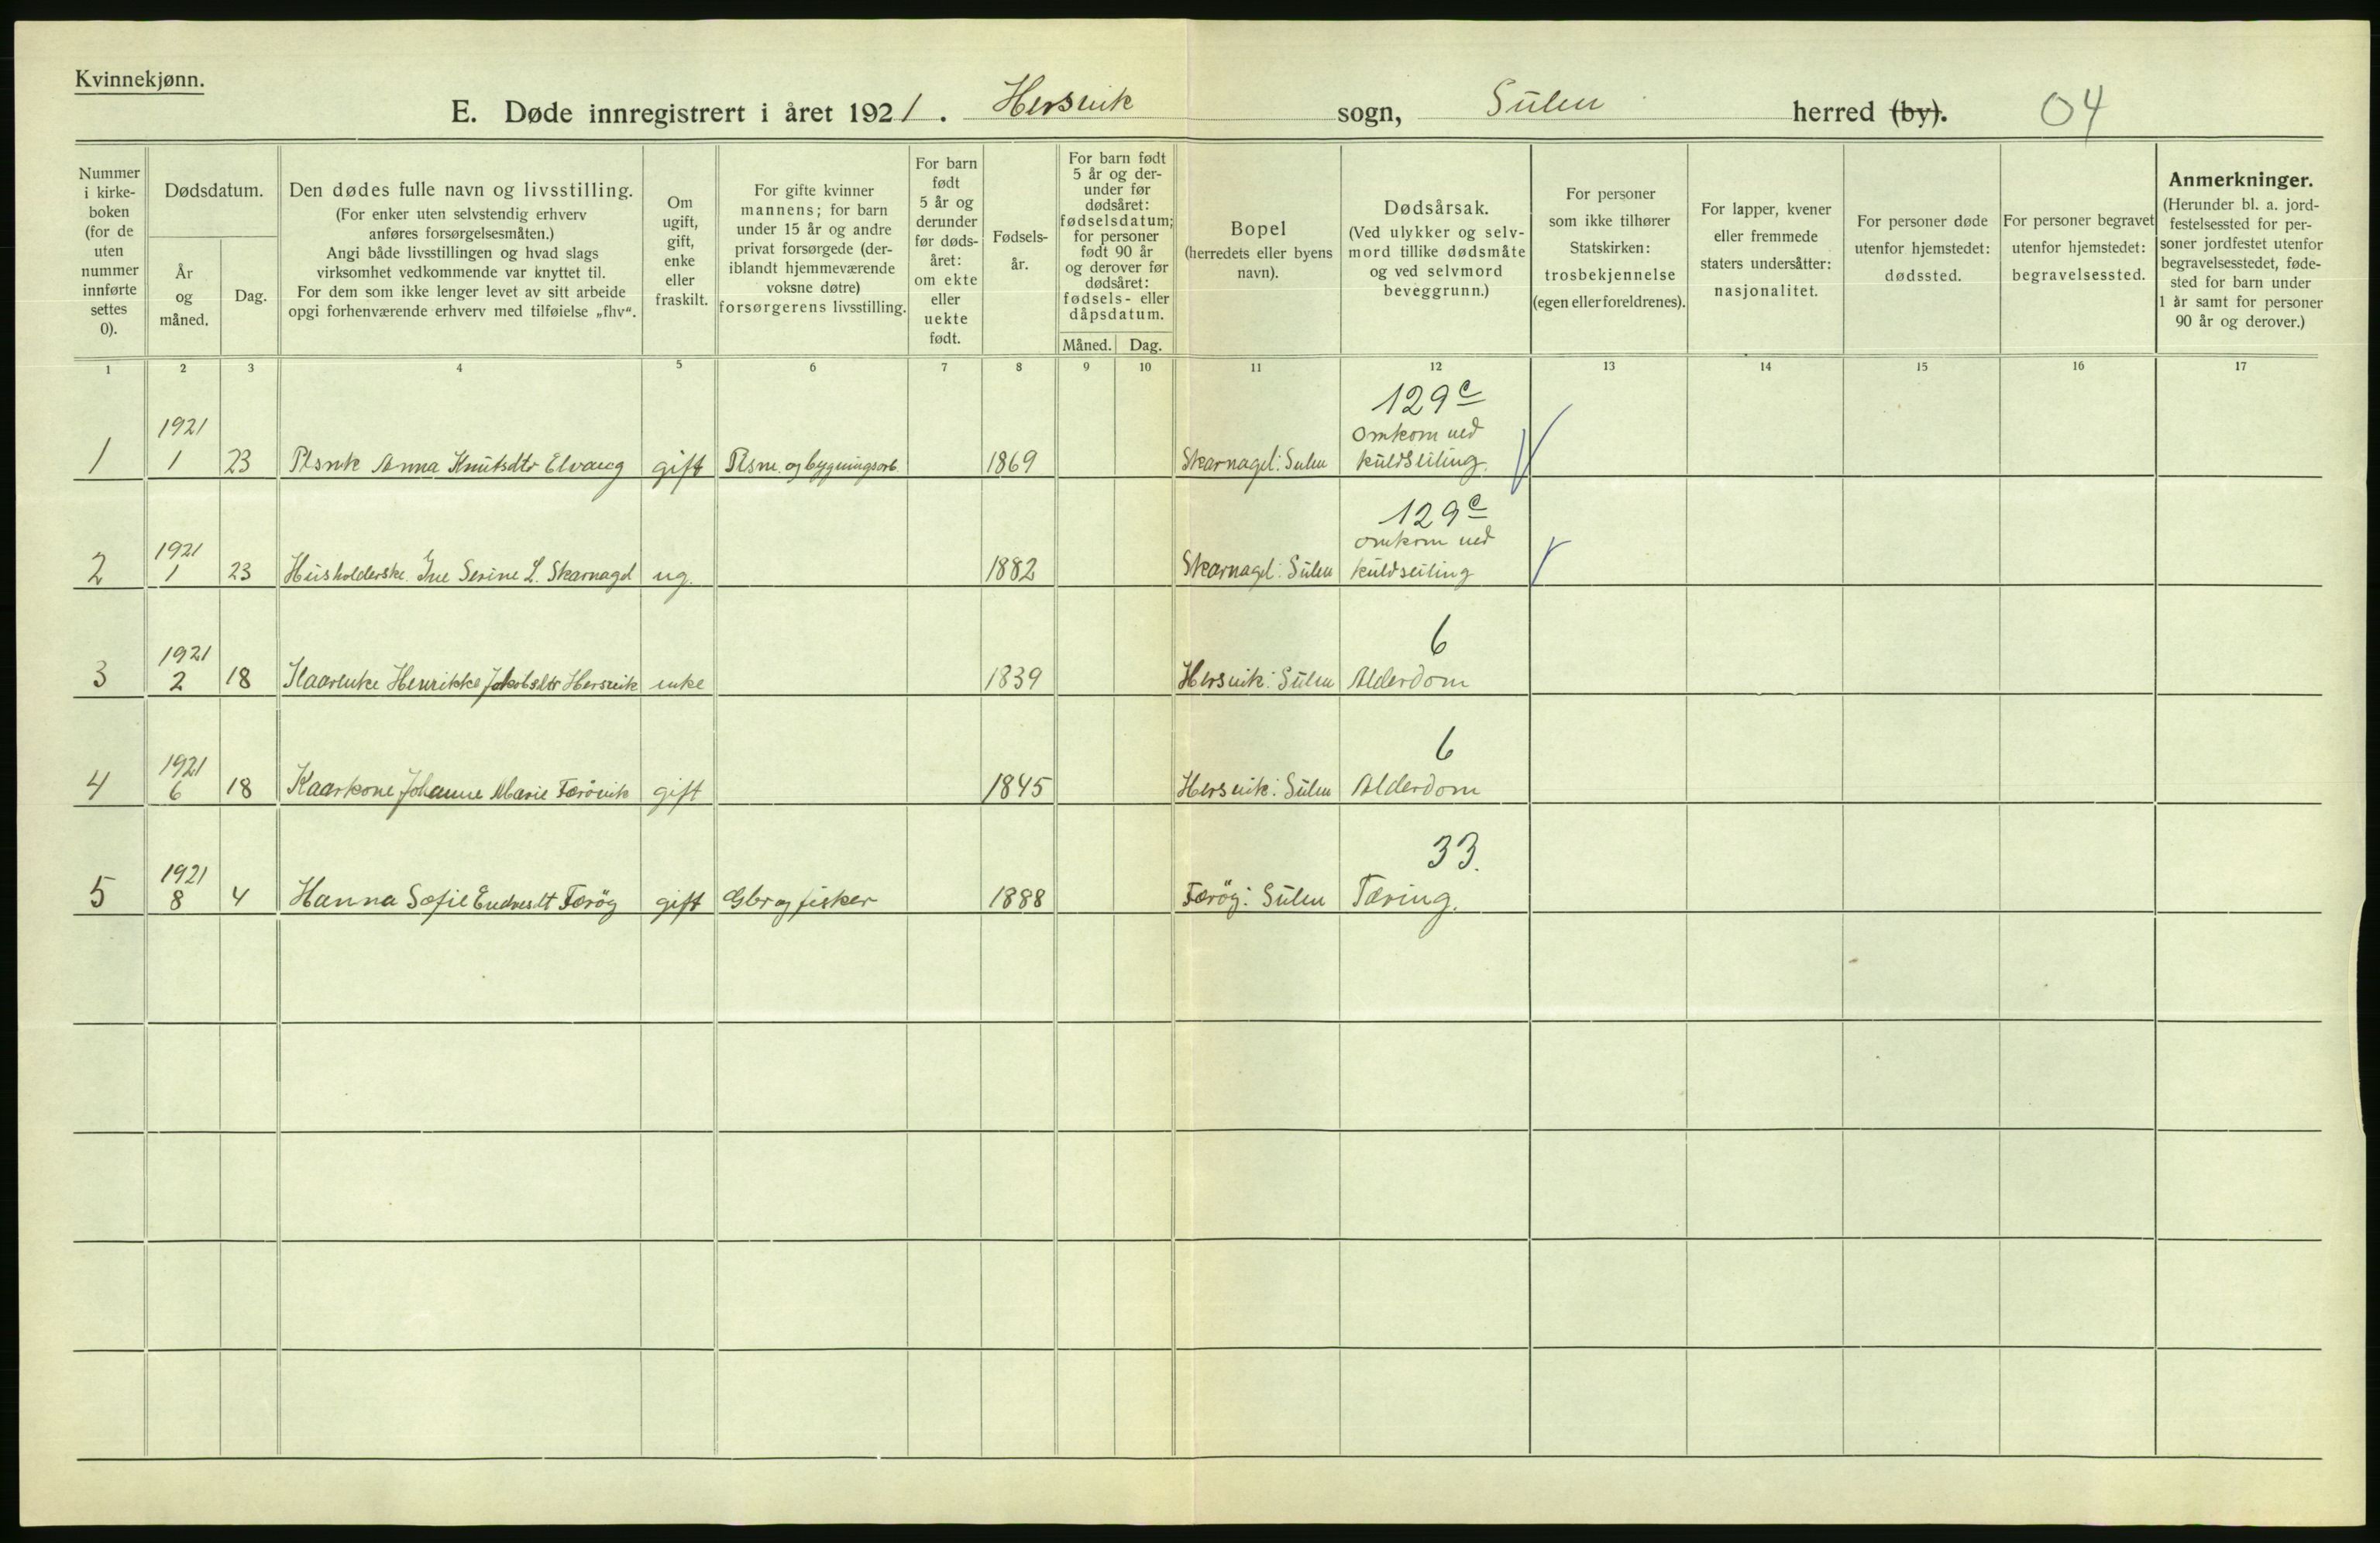 Kvinnekjønn.
E. Døde innregistrert i året 1921. Hersvik sogn, Sulen herred (by). 04
Nummer i kirke-boken (for de uten nummer innførte settes 0).
Dødsdatum.
År og måned.
Dag.
Den dødes fulle navn og livsstilling.
(For enker uten selvstendig erhverv
anføres forsørgelsesmåten.)
Angi både livsstillingen og hvad slags
virksomhet vedkommende var knyttet til.
For dem som ikke lenger levet av sitt arbeide
opgi forhenværende erhverv med tilføielse „fhv“.
Om
ugift,
gift,
enke
eller
fraskilt.
For gifte kvinner
mannens; for barn
under 15 år og andre
privat forsørgede (der-
iblandt hjemmeværende
voksne døtre)
forsørgerens livsstilling.
For barn
født
5 år og
derunder
før døds-
året:
om ekte
eller
uekte
født.
Fødsels-
år.
For barn født
5 år og der-
under før
dødsåret:
fødselsdatum;
for personer
født 90 år
og derover før
dødsåret:
fødsels- eller
dåpsdatum.
Måned. Dag.
Bopel
(herredets eller byens
navn).
Dødsårsak.
(Ved ulykker og selv-
mord tillike dødsmåte
og ved selvmord
beveggrunn.)
For personer
som ikke tilhører
Statskirken:
trosbekjennelse
(egen eller foreldrenes).
For lapper, kvener
eller fremmede
staters undersåtter:
nasjonalitet.
For personer døde
utenfor hjemstedet:
dødssted.
For personer begravet
utenfor hjemstedet:
begravelsessted.
Anmerkninger.
(Herunder bl. a. jord-
festelsessted for per-
soner jordfestet utenfor
begravelsesstedet, føde-
sted for barn under
1 år samt for personer
90 år og derover.)
1 2 3 4 5 6 7 8 9 10 11 12 13 14 15 16 17
129c
1921 omkom ved
1 1 23 Plsnk Anna Knutsdtr Elvaag gift Plsm. og bygningsarb. 1869 Skarnagel: Sulen kuldseiling.
129c
1921 omkom ved
2 1 23 Husholderske Ine Serine L. Skarnagel ug. 1882 Skarnagel: Sulen kuldseiling
1921 6
3 2 18 Kaarenke Henrikke Jakobsdtr Hersvik enke 1839 Hersvik: Sulen Alderdom
1921 6
4 6 18 Kaarkone Johanne Marie Færövik gift 1845 Hersvik: Sulen Alderdom
1921 33.
5 8 4 Hanna Sofie Endresdt Færöy gift Gbr og fisker 1888 Færöy: Sulen Tæring.